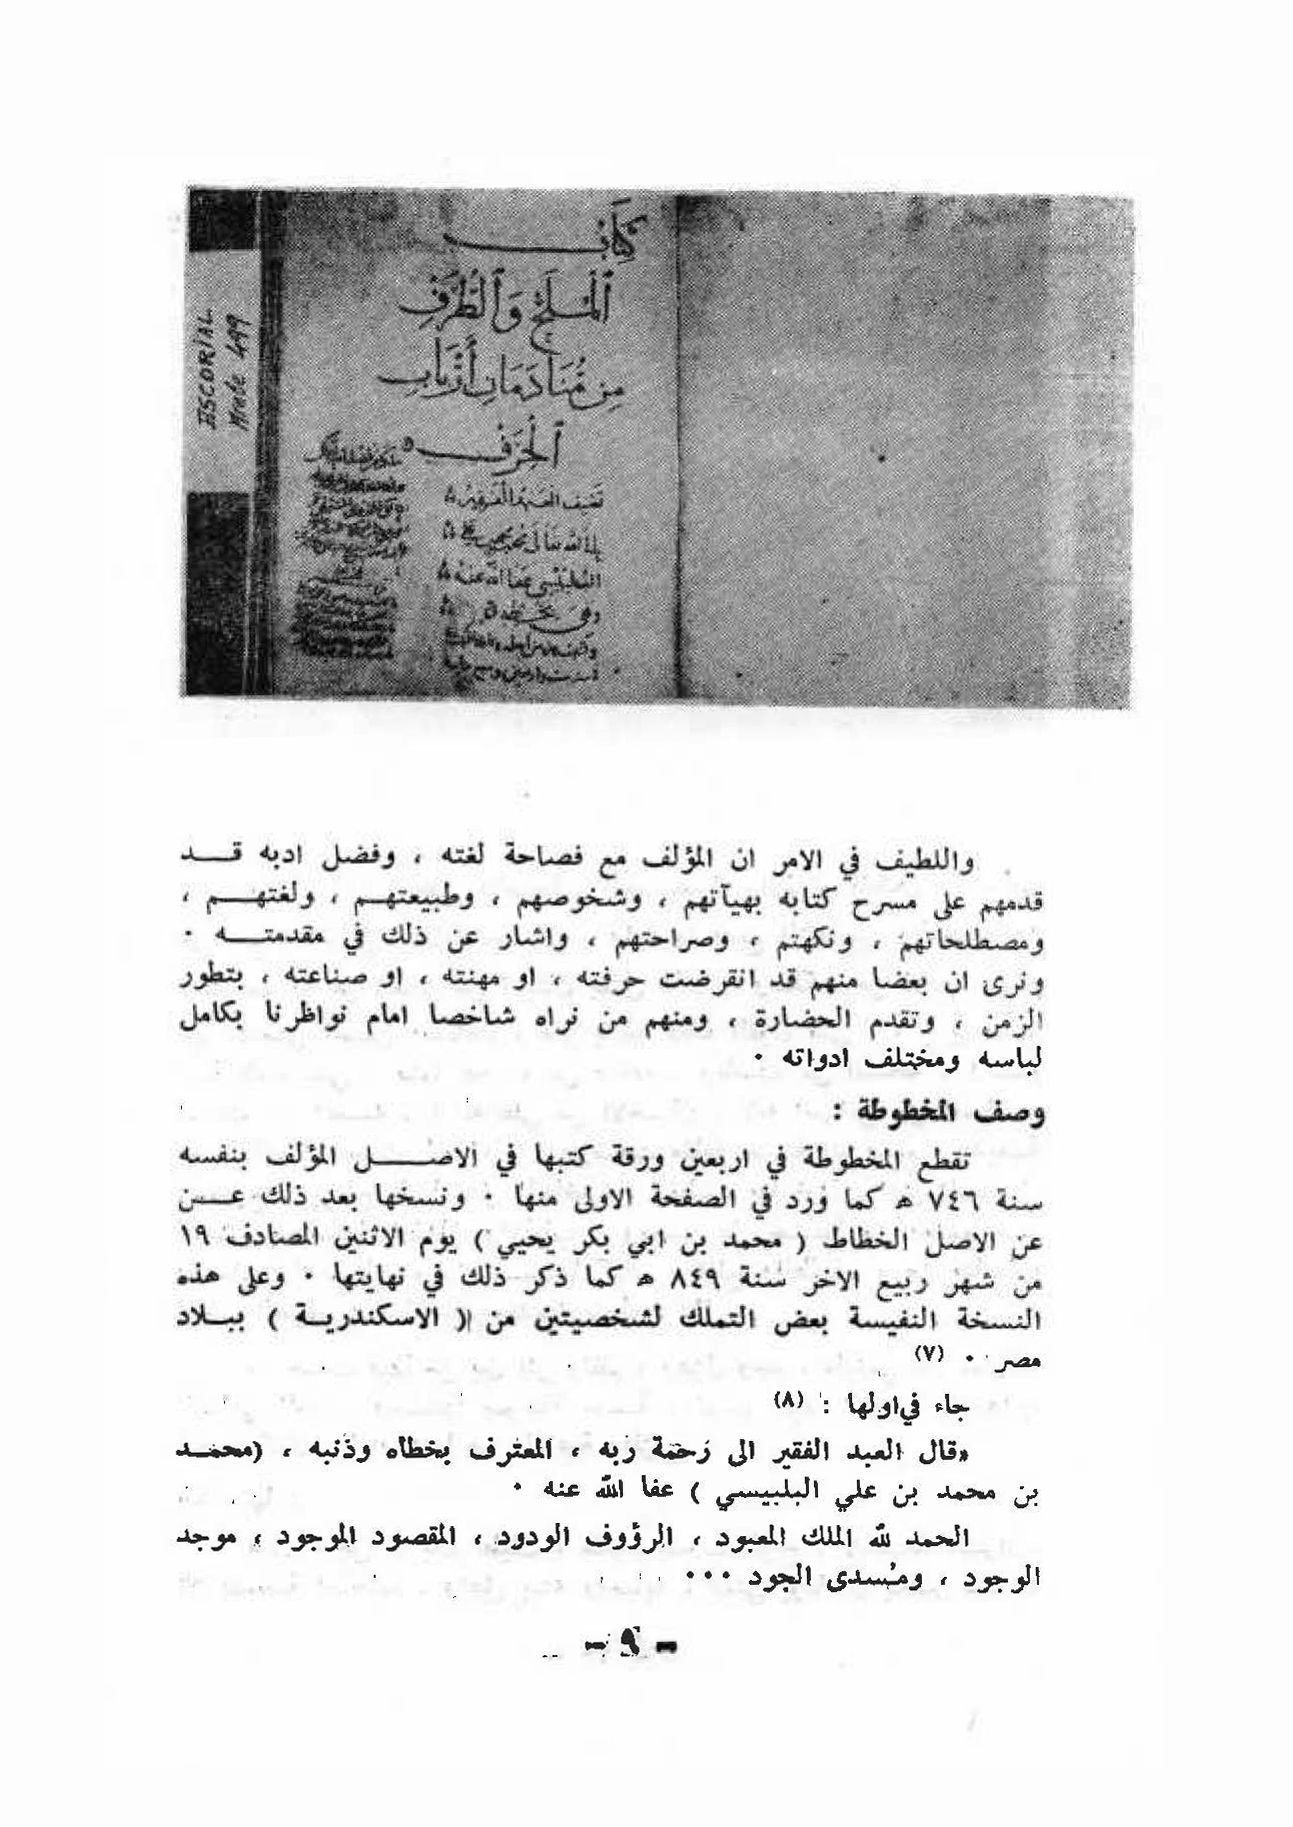 ESCORIAL
Arabe 499
كتاب
ٱلمُلَحِ وَٱلطُّرَفِ
مِن مُنَادَمَاتِ أَرْبَابِ
ٱلْحِرَفِ
تصنيف العبد الفقير
الى الله تعالى محمد بن محمد بن علي
البلبيسي عفا الله عنه
واللطيف في الامر ان المؤلف مع فصاحة لغته ، وفضل ادبه قـــد
قدمهم على مسرح كتابه بهيآتهم ، وشخوصهم ، وطبيعتهـم ، ولغتهـــم ،
ومصطلحاتهم ، ونكهتم ، وصراحتهم ، واشار عن ذلك في مقدمتــه ٠
ونرى ان بعضا منهم قد انقرضت حرفته ، او مهنته ، او صناعته ، بتطور
الزمن ، وتقدم الحضارة ، ومنهم من نراه شاخصا امام نواظرنا بكامل
لباسه ومختلف ادواته ٠
وصف المخطوطة :
تقطع المخطوطة في اربعين ورقة كتبها في الاصـــل المؤلف بنفسه
سنة ٧٤٦ هـ كما ورد في الصفحة الاولى منها ٠ ونسخها بعد ذلك عـــن
عن الاصل الخطاط ( محمد بن ابي بكر يحيي ) يوم الاثنين المصادف ١٩
من شهر ربيع الاخر سنة ٨٤٩ هـ كما ذكر ذلك في نهايتها ٠ وعلى هذه
النسخة النفيسة بعض التملك لشخصيتين من ( الاسكندريـة ) ببـلاد
مصر ٠ (٧)
جاء في اولها : (٨)
«قال العبد الفقير الى رحمة ربه ، المعترف بخطاه وذنبه ، (محمــد
بن محمد بن علي البلبيسي ) عفا الله عنه ٠
الحمد لله الملك المعبود ، الرؤوف الودود ، المقصود الموجود ، موجد
الوجود ، ومُسدى الجود ٠٠٠
- ٩ -